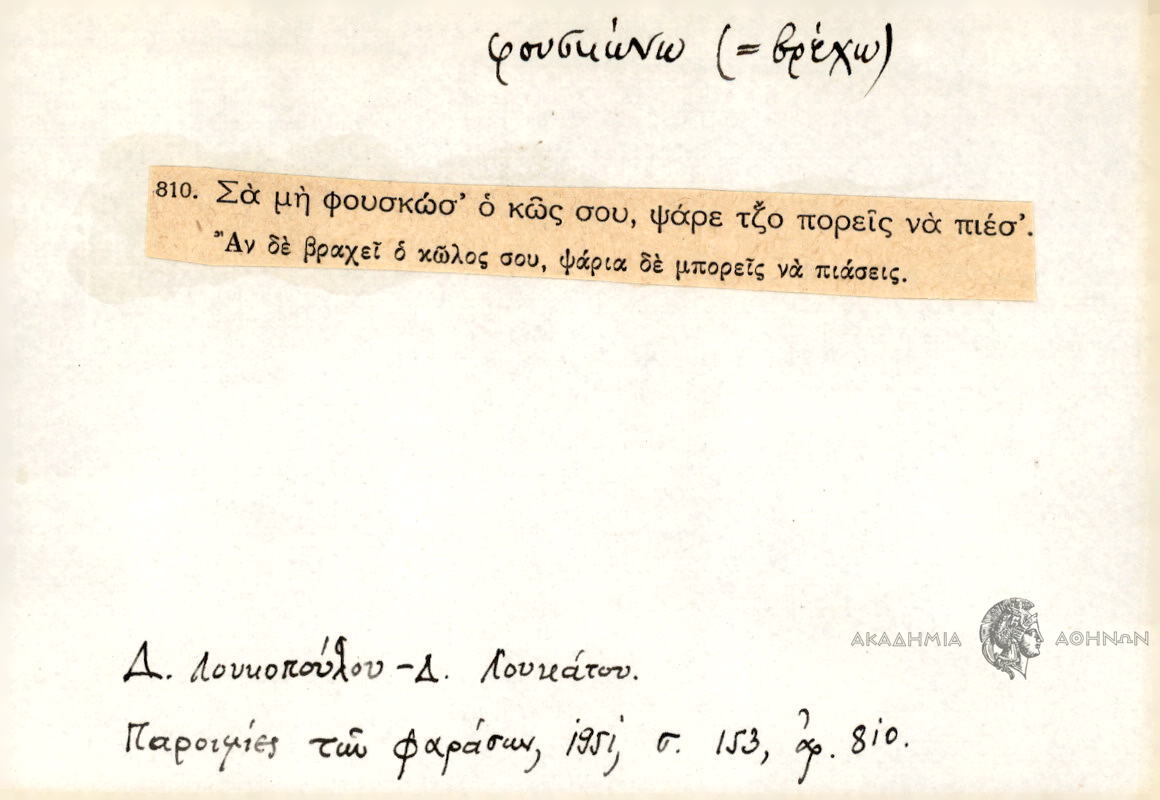 φουσκώνω (= βρέχω)
810. Σὰ μὴ φουσκώσ’ ὁ κῶς σου, ψάρε τζ̌ο πορεῖς νὰ πιέσ’.
Ἂν δὲ βραχεῖ ὁ κῶλος σου, ψάρια δὲ μπορεῖς νὰ πιάσεις.
ΑΚΑΔΗΜΙΑ ΑΘΗΝΩΝ
Δ. Λουκοπούλου – Δ. Λουκάτου.
Παροιμίες τῶν Φαράσων, 1951, σ. 153, ἀρ. 810.